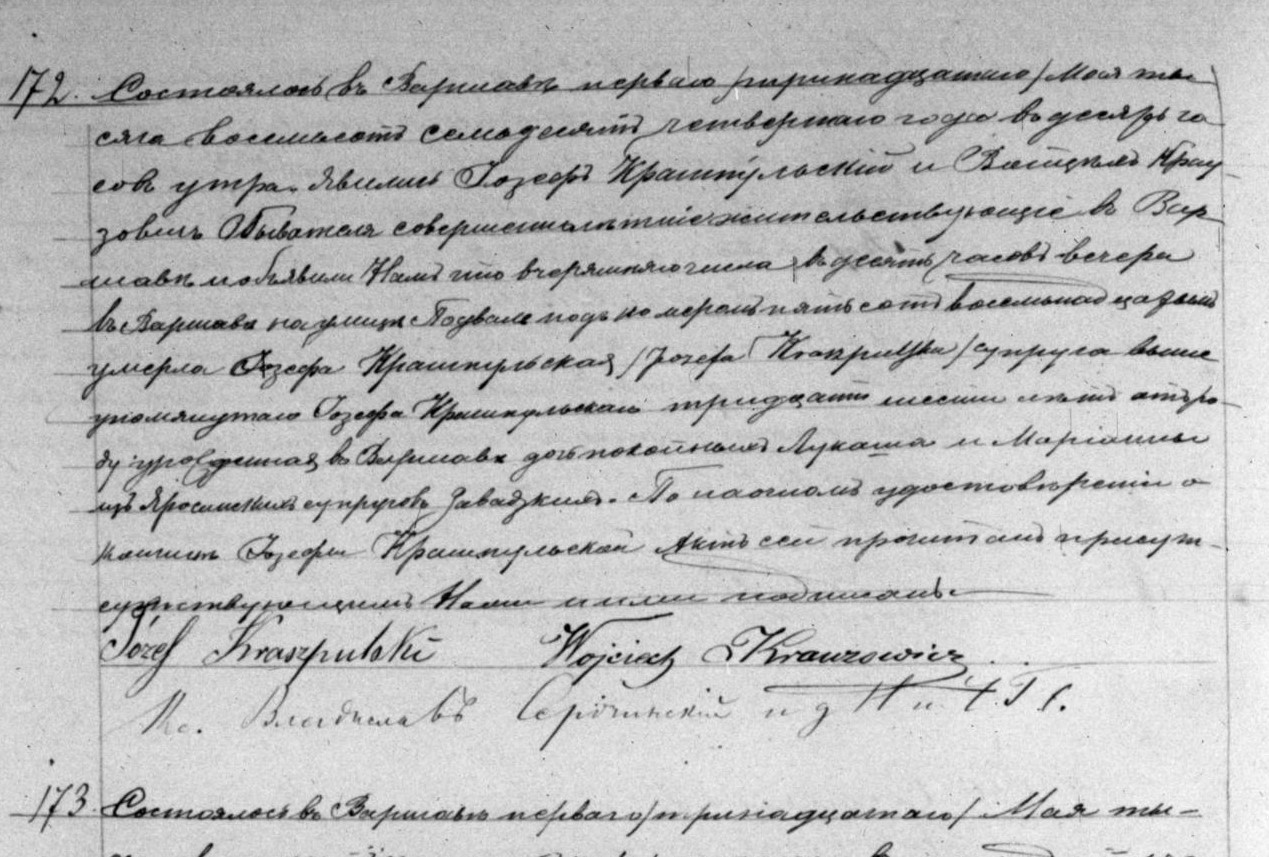 172. Состоялось въ Варшавѣ перваго /тринадцатаго/ Мая ты-
сяча восемьсотъ семьдесятъ четвертаго года въ десять ча
совъ утра. Явились Іозефъ Крашпульскій и Войцѣхъ Крау-
зовичъ Обыватели совершеннолѣтніе жительствующіе въ Вар-
шавѣ и объявили Намъ что вчерашняго числа въ десять часовъ вечера
въ Варшавѣ на улицѣ Подвале подъ номеромъ пятьсотъ восемьнадцатымъ
умерла Іозефа Крашпульская /Jozefa Kraszpulska/ супруга выше
упомянутаго Іозефа Крашпульскаго тридцати шести лѣтъ отъ ро-
ду урожденная въ Варшавѣ дочь покойныхъ Лукаша и Маріанны
изъ Яросинскихъ супруговъ Завадзкихъ. По наочномъ удостовѣреніи о
кончинѣ Іозефы Крашпульской Актъ сей прочитанъ присут-
ствующимъ Нами и ими подписанъ.
Józef Kraszpulski Wojciech Krauzowicz
Кс. Владиславъ Серочинскій и д Н и Ч. Г. С.
173. Состоялось въ Варшавѣ перваго /тринадцатаго/ Мая ты-